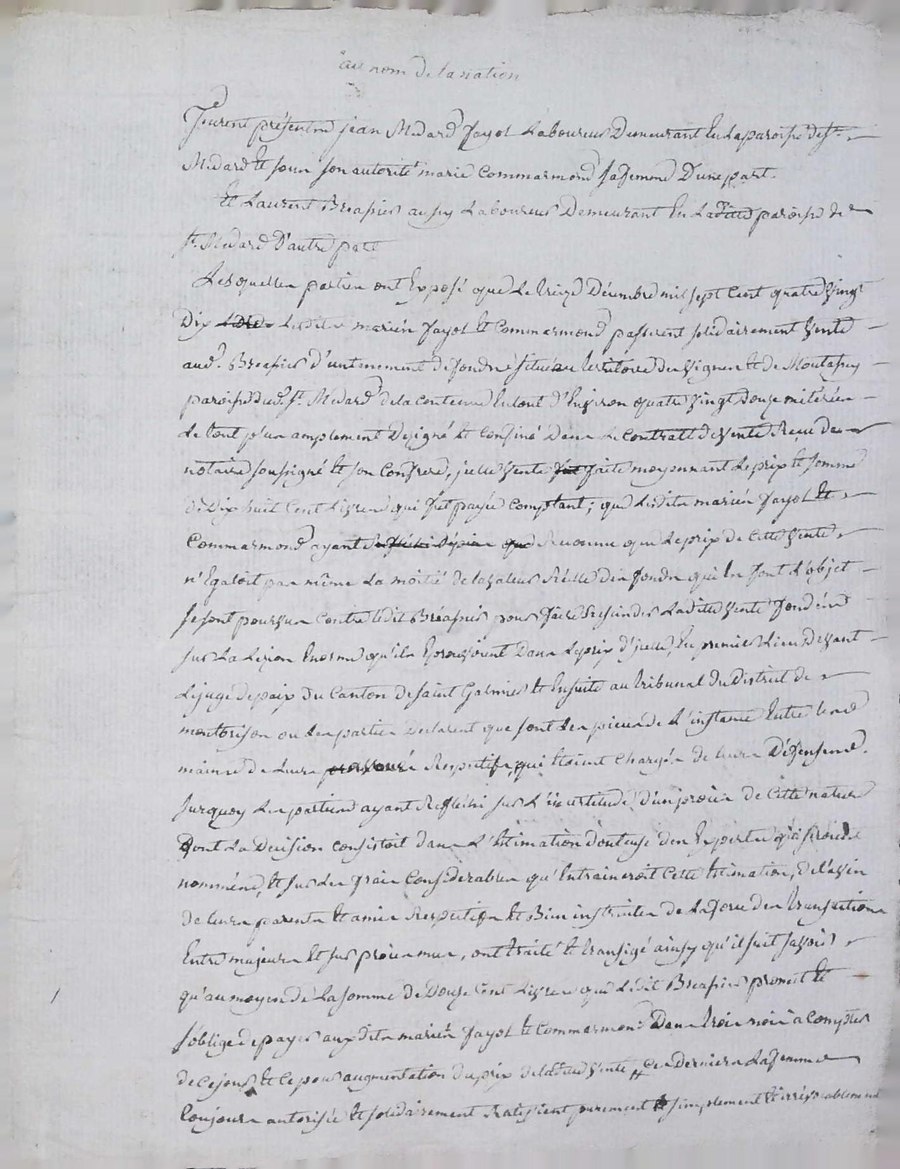 au nom de la nation
furent présents jean Medard Fayol Laboureur Demeurant En La paroisse de st
Medard Et sous son autorité marie Commarmond sa femme D'une part.
Et Laurent Breassier aussy Laboureur Demeurant En Ladite paroisse de
st. Medard D'autre part
Lesquelles parties ont Exposé que Le treize Décembre mil sept Cent quatre vingt
Dix Lesdits mariés Fayol Et Commarmond passerent solidairement vente
aud. Breassier d'un tenement de fonds situé au territoire des vignes Et de
paroisse dud. st. Medard de la contenue En tout d'Environ quatre vingt douze
Le tout plus amplement Designé Et Confiné Dans Le Contratt de vente Reçu des
notaire soussigné Et son Confrere, icelle vente fut faite moyennant Le prix Et somme
de Dix huit Cent Livres qui fut payée Comptant; que Lesdits mariés Fayol Et
Commarmond ayant Reconnu que Le prix de Cette vente
n'Egaloit pas même La moitié de la valeur Réelle des fonds qui En font L'objet
se sont pourvus Contre Ledit Breassier pour faire Rescinder Ladite vente fondés
sur La Lezion Enorme qu'ils Eprouvoient Dans Le prix d'icelle, En premier Lieu Devant
Le juge de paix du Canton de Saint Galmier Et Ensuite au tribunal du District de
montbrison ou Les parties Declarent que sont Les pieces de L'instance Entre Les
mains de Leurs Respectifs, qui Etoient Chargés de Leurs Défenses.
surquoy Les parties ayant Reflechi sur L'incertitude d'un procès de Cette nature
Dont La Decision Consistoit dans L'Estimation douteuse des Experts qui seroient
nommés, Et sur Les frais Considerables qu'Entraineroit Cette Estimation, de L'avis
de Leurs parents Et amis Respectifs Et Bien instruites de La force des transactions
Entre majeurs Et sur procès mus, ont traité Et transigé ainsy qu'il suit savoir
qu'au moyen de La somme de Douze Cent Livres que Ledit Breassier promet Et
s'oblige de payer auxdits mariés Fayol Et Commarmond Dans trois mois à Compter
de Ce jour Et Ce pour augmentation du prix de Ladite vente Ces Derniers La femme
toujours autorisée Et solidairement Ratifient purement Et simplement Et irrévocablement